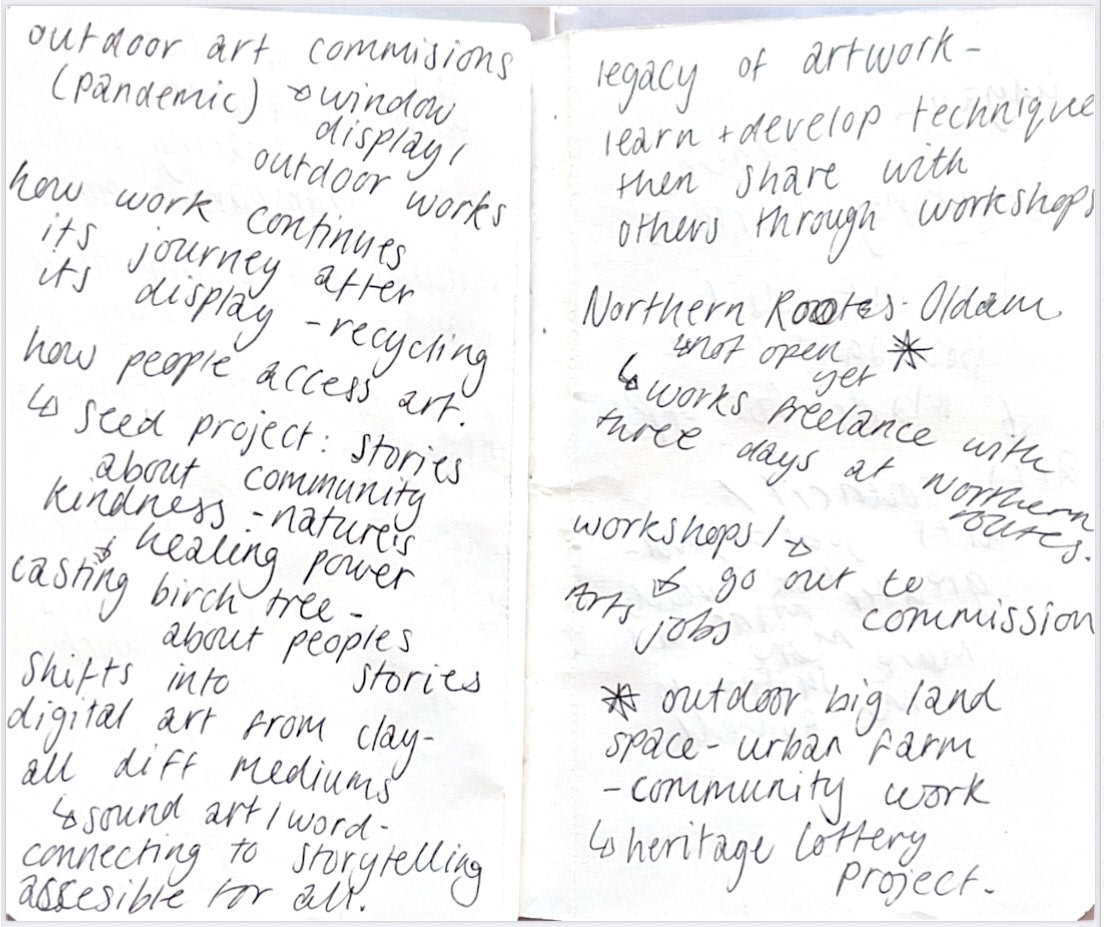 outdoor art commisions
(pandemic) ↳ window
display /
outdoor works
how work continues
its journey after
its display - recycling
how people access art.
↳ seed project: stories
about community
kindness - nature's
↳ healing power
casting birch tree -
about peoples
stories
shifts into
digital art from clay -
all diff mediums
↳ sound art / word -
connecting to storytelling
accesible for all.
legacy of artwork -
learn + develop technique
then share with
others through workshops
Northern Rootes - Oldam
↳ not open *
yet
↳ works freelance with
three days at Northern
routes.
workshops / ↳
↳ go out to
Arts jobs
commission
* outdoor big land
space - urban farm
- community work
↳ heritage lottery
project.